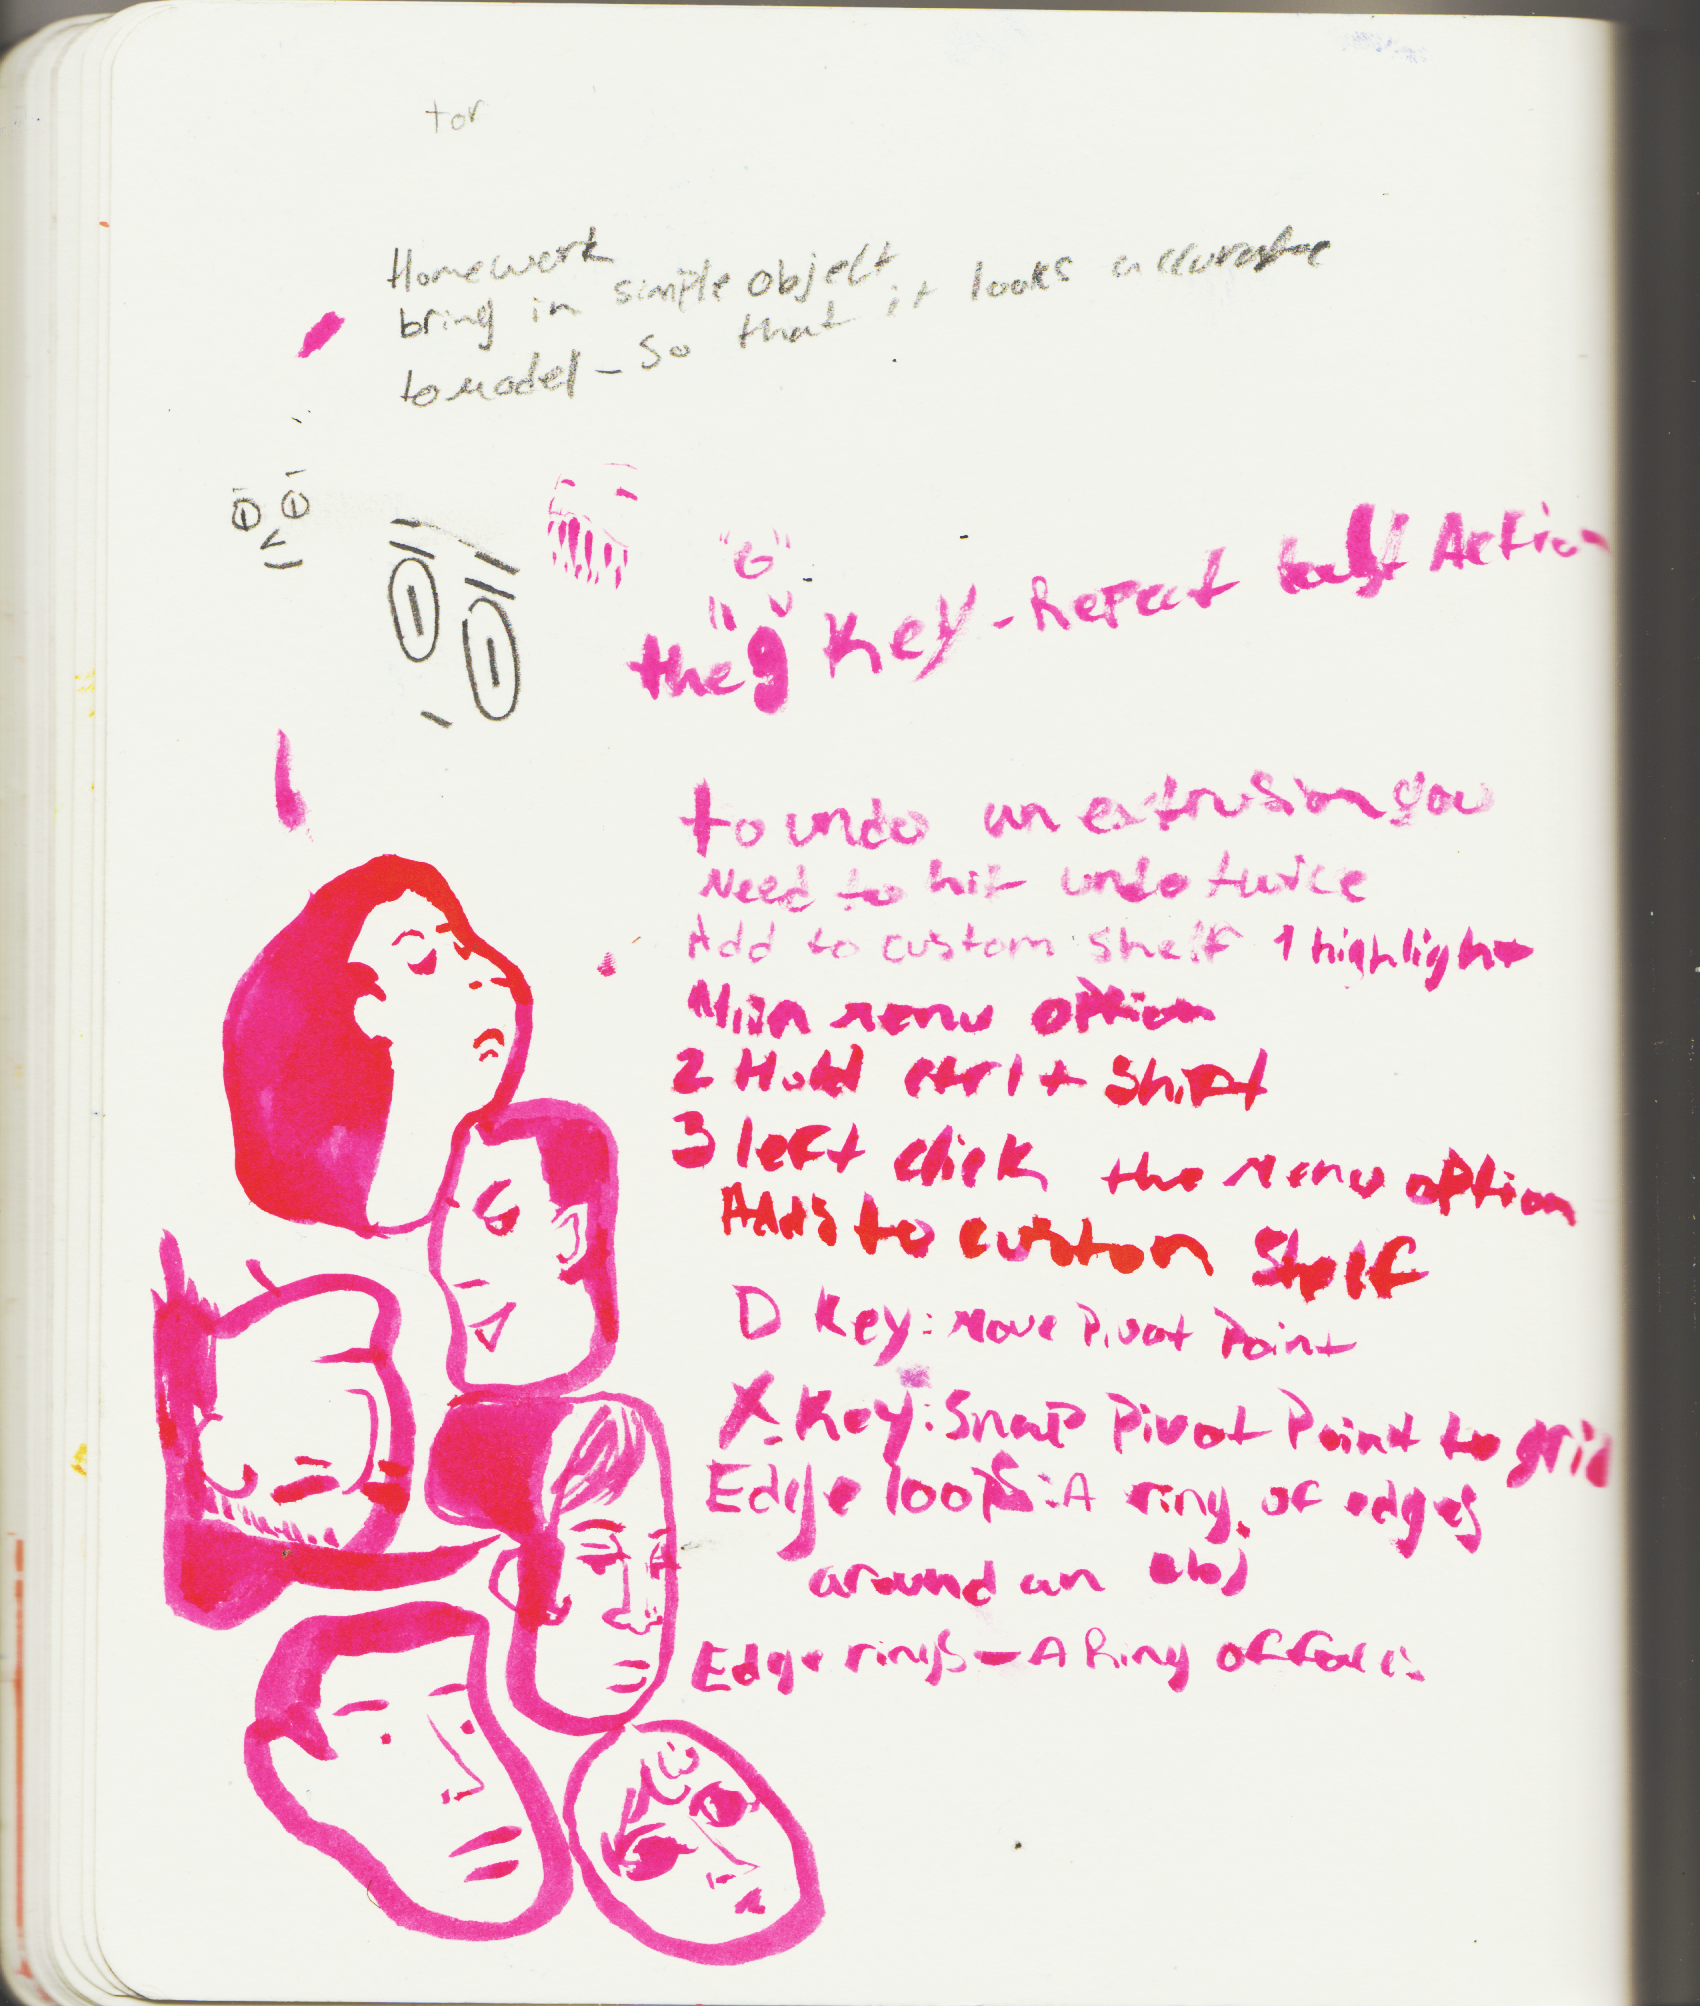 tor
Homework
bring in simple object
to model - so that it looks accurate
"G"
the "g" Key - Repeat last Action
to undo an extrusion you
Need to hit undo twice
Add to custom shelf 1 highlight
Main menu option
2 Hold ctrl + Shift
3 left click the menu option
Adds to custom Shelf
D Key: Move Pivot Point
X Key: Snap Pivot Point to grid
Edge loops: A ring of edges
around an obj
Edge rings - A Ring of faces